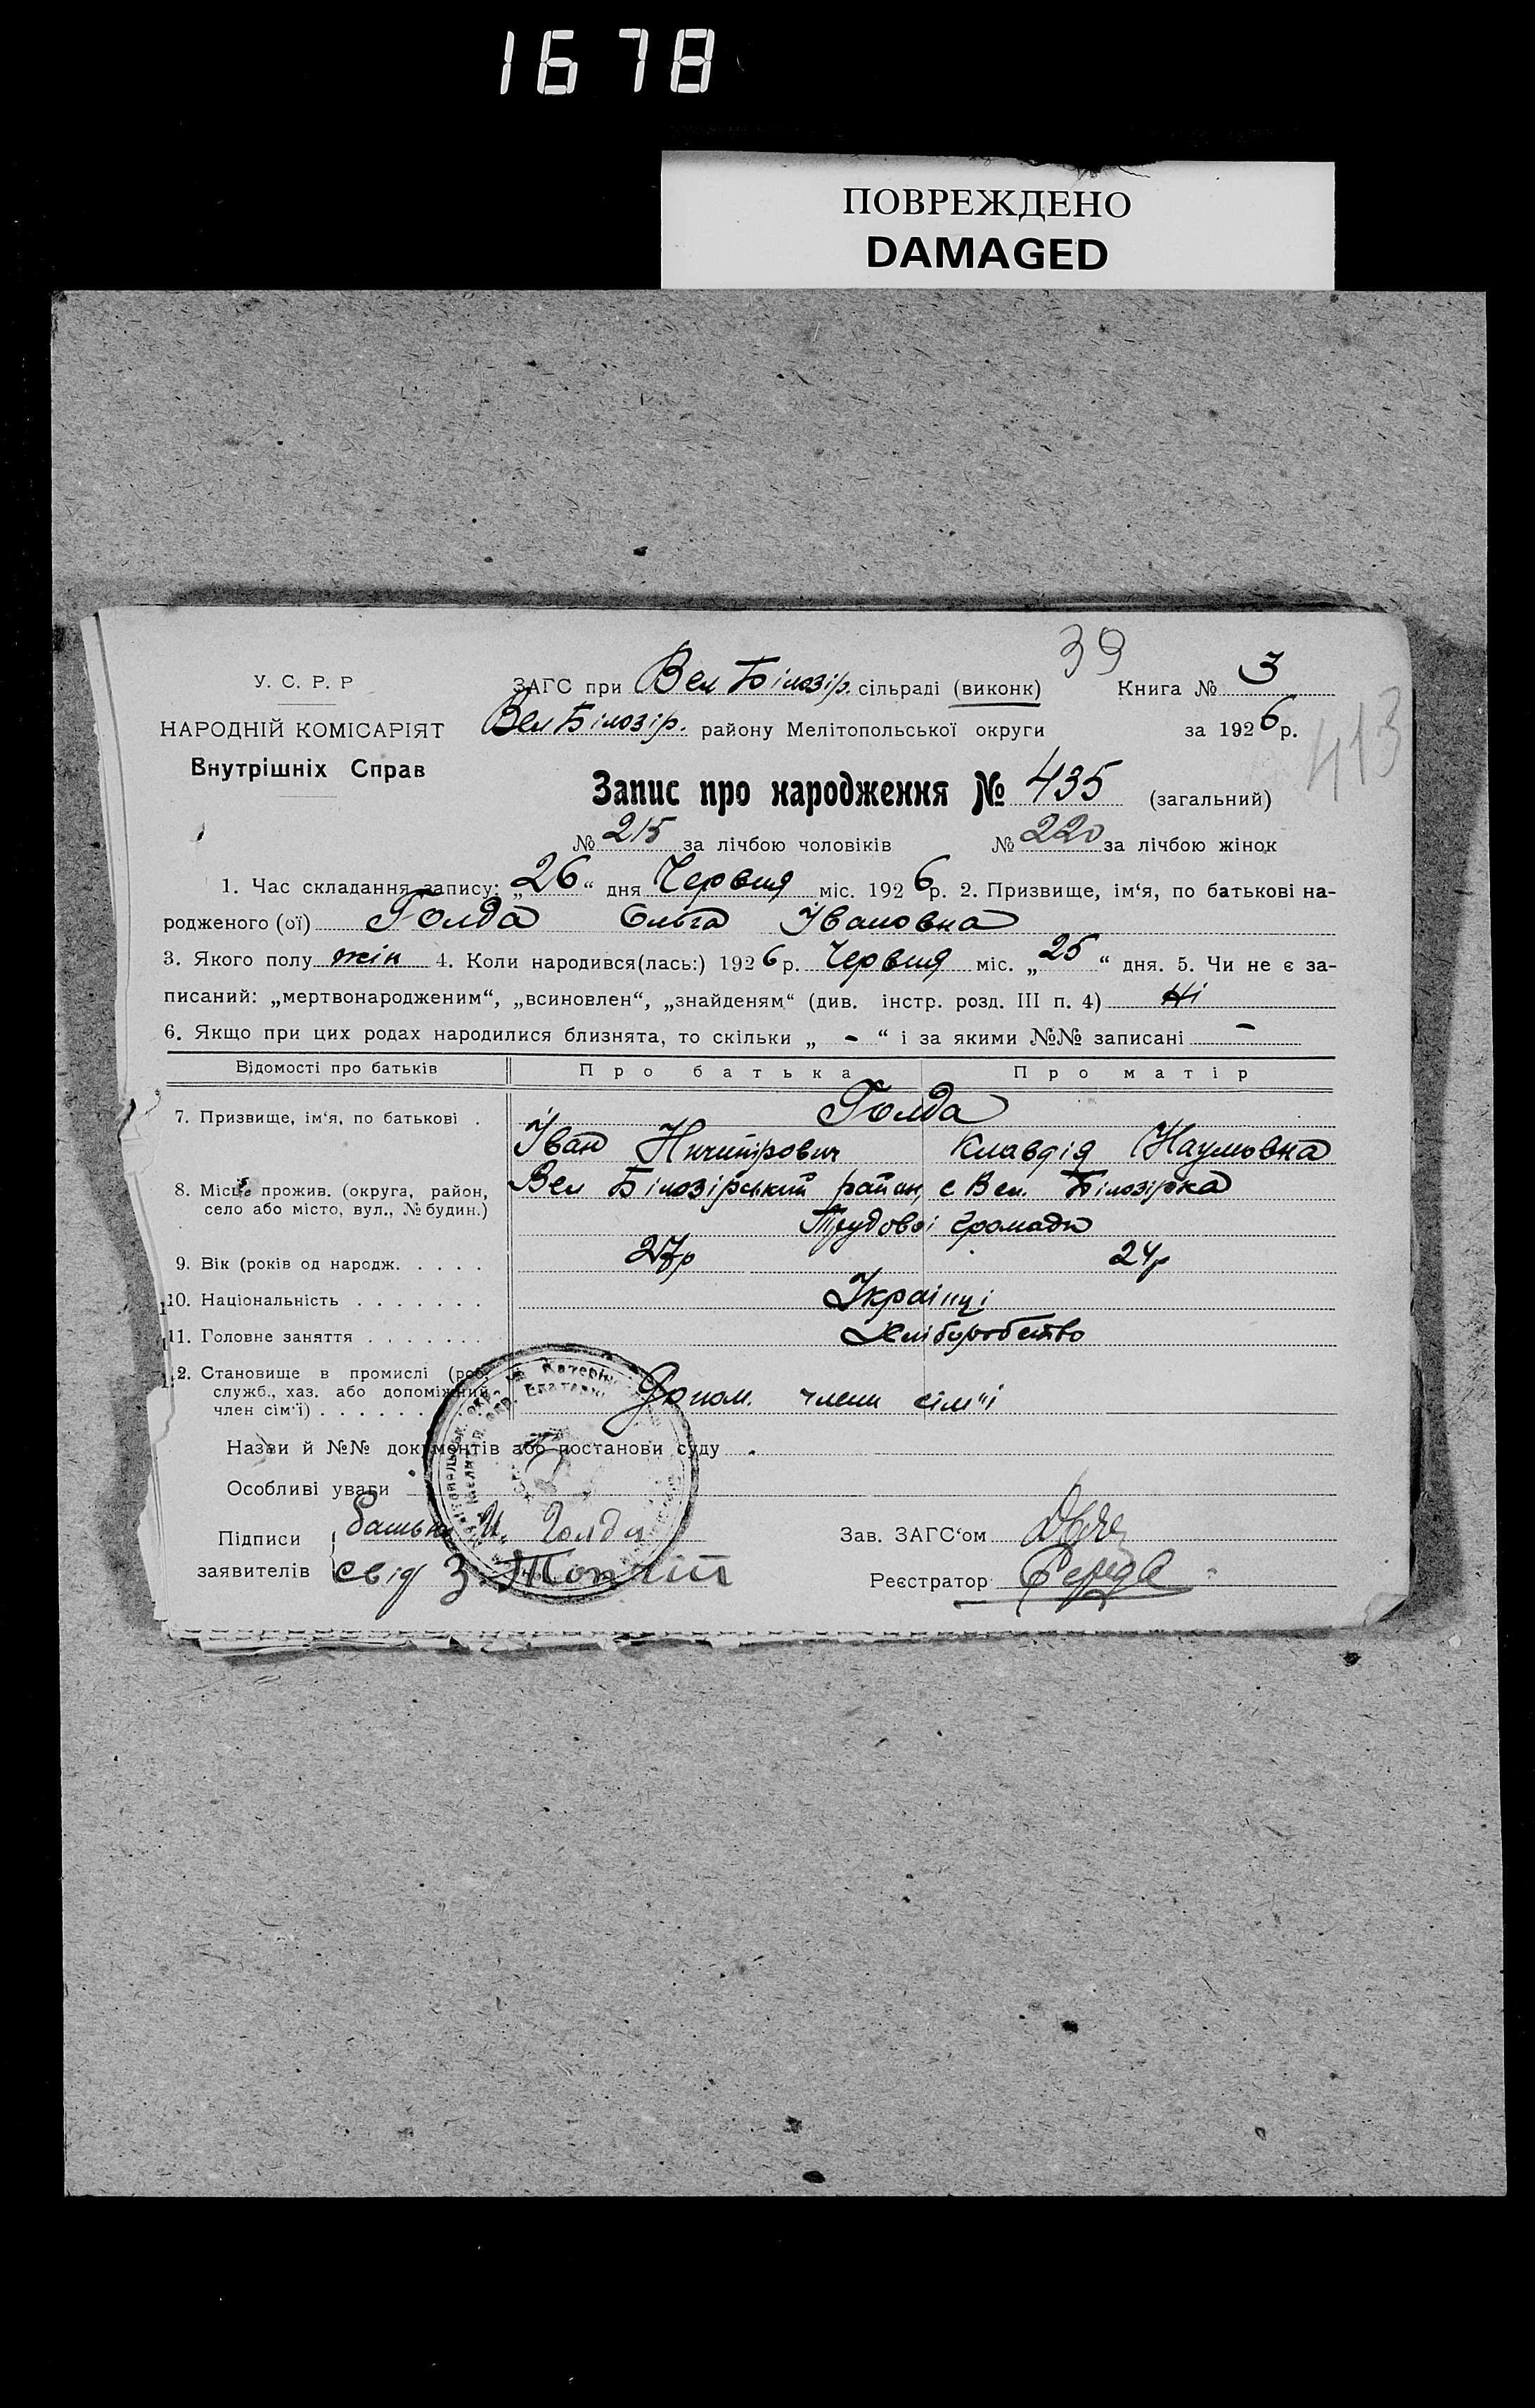 1678
ПОВРЕЖДЕНО
DAMAGED
39
У. С. Р. Р
ЗАГС при Вел Білозір. сільраді (виконк)
Книга № 3
НАРОДНІЙ КОМІСАРІЯТ
Вел Білозір. району Мелітопольської округи
за 1926 р.
413
Внутрішніх Справ
Запис про народження № 435 (загальний)
№ 215 за лічбою чоловіків № 220 за лічбою жінок
1. Час складання запису: „26“ дня Червня міс. 1926 р. 2. Призвище, ім‘я, по батькові на-
родженого (ої) Голда Ольга Івановна
3. Якого полу жін 4. Коли народився(лась:) 1926 р. Червня міс. „25“ дня. 5. Чи не є за-
писаний: „мертвонародженим“, „всиновлен“, „знайденям“ (див. інстр. розд. III п. 4) Ні
6. Якщо при цих родах народилися близнята, то скільки „ - “ і за якими №№ записані -
Відомості про батьків Про батька Про матір
Голда
7. Призвище, ім‘я, по батькові .
Іван Ничипірович Клавдія Наумовна
8. Місце прожив. (округа, район, Вел Білозірський район, с Вел. Білозірка
село або місто, вул., № будин.)
Трудової громади
9. Вік (років од народж. . . . . 27р 24р
10. Національність . . . . . . . Українці
11. Головне заняття . . . . . . . Хліборобство
12. Становище в промислі (роб.
служб., хаз. або допоміжний Допом. члени сім"ї
член сім‘ї) . . . . . .
Назви й №№ документів або постанови суду
Особливі уваги
Підписи Батько И. Голда
Зав. ЗАГС‘ом
заявителів свід З. Топчій
Реєстратор Середа